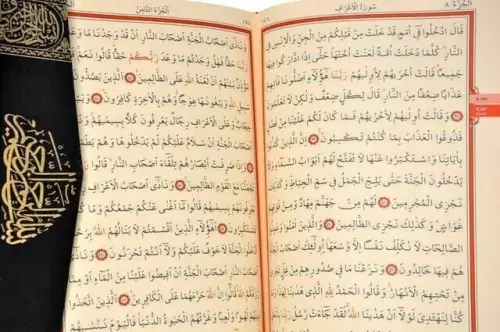 الجزء ٨
سورة الأعراف
قَالَ ادْخُلُوا فِي أُمَمٍ قَدْ خَلَتْ مِنْ قَبْلِكُمْ مِنَ الْجِنِّ وَالْإِنْسِ فِي
النَّارِ كُلَّمَا دَخَلَتْ أُمَّةٌ لَعَنَتْ أُخْتَهَا حَتَّى إِذَا ادَّارَكُوا فِيهَا
جَمِيعًا قَالَتْ أُخْرٰيهُمْ لِأُولٰيهُمْ رَبَّنَا هٰؤُلَاءِ أَضَلُّونَا فَاٰتِهِمْ
عَذَابًا ضِعْفًا مِنَ النَّارِ قَالَ لِكُلٍّ ضِعْفٌ وَلٰكِنْ لَا تَعْلَمُونَ
وَقَالَتْ أُولٰيهُمْ لِأُخْرٰيهُمْ فَمَا كَانَ لَكُمْ عَلَيْنَا مِنْ فَضْلٍ
فَذُوقُوا الْعَذَابَ بِمَا كُنْتُمْ تَكْسِبُونَ إِنَّ الَّذِينَ كَذَّبُوا
بِاٰيَاتِنَا وَاسْتَكْبَرُوا عَنْهَا لَا تُفَتَّحُ لَهُمْ أَبْوَابُ السَّمَاءِ وَلَا
يَدْخُلُونَ الْجَنَّةَ حَتَّى يَلِجَ الْجَمَلُ فِي سَمِّ الْخِيَاطِ وَكَذٰلِكَ
نَجْزِي الْمُجْرِمِينَ لَهُمْ مِنْ جَهَنَّمَ مِهَادٌ وَمِنْ فَوْقِهِمْ
غَوَاشٍ وَكَذٰلِكَ نَجْزِي الظَّالِمِينَ وَالَّذِينَ اٰمَنُوا وَعَمِلُوا
الصَّالِحَاتِ لَا نُكَلِّفُ نَفْسًا إِلَّا وُسْعَهَا أُولٰئِكَ أَصْحَابُ الْجَنَّةِ
هُمْ فِيهَا خَالِدُونَ وَنَزَعْنَا مَا فِي صُدُورِهِمْ مِنْ غِلٍّ تَجْرِي
مِنْ تَحْتِهِمُ الْأَنْهَارُ وَقَالُوا الْحَمْدُ لِلّٰهِ الَّذِي هَدٰينَا لِهٰذَا وَمَا
كُنَّا لِنَهْتَدِيَ لَوْلَا أَنْ هَدٰينَا اللّٰهُ لَقَدْ جَاءَتْ رُسُلُ رَبِّنَا
الجزء الثامن
١٥٥
وَنَادٰى أَصْحَابُ الْجَنَّةِ أَصْحَابَ النَّارِ أَنْ قَدْ وَجَدْنَا مَا وَعَدَنَا
رَبُّنَا حَقًّا فَهَلْ وَجَدْتُمْ مَا وَعَدَ رَبُّكُمْ حَقًّا قَالُوا نَعَمْ
مُؤَذِّنٌ بَيْنَهُمْ أَنْ لَعْنَةُ اللّٰهِ عَلَى الظَّالِمِينَ الَّذِينَ يَصُدُّونَ
سَبِيلِ اللّٰهِ وَيَبْغُونَهَا عِوَجًا وَهُمْ بِالْاٰخِرَةِ كَافِرُونَ
حِجَابٌ وَعَلَى الْأَعْرَافِ رِجَالٌ يَعْرِفُونَ كُلًّا بِسِيمٰيهُمْ
أَصْحَابَ الْجَنَّةِ أَنْ سَلَامٌ عَلَيْكُمْ لَمْ يَدْخُلُوهَا وَهُمْ يَطْمَعُونَ
وَإِذَا صُرِفَتْ أَبْصَارُهُمْ تِلْقَاءَ أَصْحَابِ النَّارِ قَالُوا
مَعَ الْقَوْمِ الظَّالِمِينَ وَنَادٰى أَصْحَابُ الْأَعْرَافِ
يَعْرِفُونَهُمْ بِسِيمٰيهُمْ قَالُوا مَا أَغْنٰى عَنْكُمْ جَمْعُكُمْ وَمَا كُنْتُمْ
أَهٰؤُلَاءِ الَّذِينَ أَقْسَمْتُمْ لَا يَنَالُهُمُ اللّٰهُ بِرَحْمَةٍ
الْجَنَّةَ لَا خَوْفٌ عَلَيْكُمْ وَلَا أَنْتُمْ تَحْزَنُونَ وَنَادٰى
النَّارِ أَصْحَابَ الْجَنَّةِ أَنْ أَفِيضُوا عَلَيْنَا مِنَ الْمَاءِ أَوْ مِمَّا
اللّٰهُ قَالُوا إِنَّ اللّٰهَ حَرَّمَهُمَا عَلَى الْكَافِرِينَ الَّذِينَ اتَّخَذُوا
لَهْوًا وَلَعِبًا وَغَرَّتْهُمُ الْحَيٰوةُ الدُّنْيَا فَالْيَوْمَ نَنْسٰيهُمْ